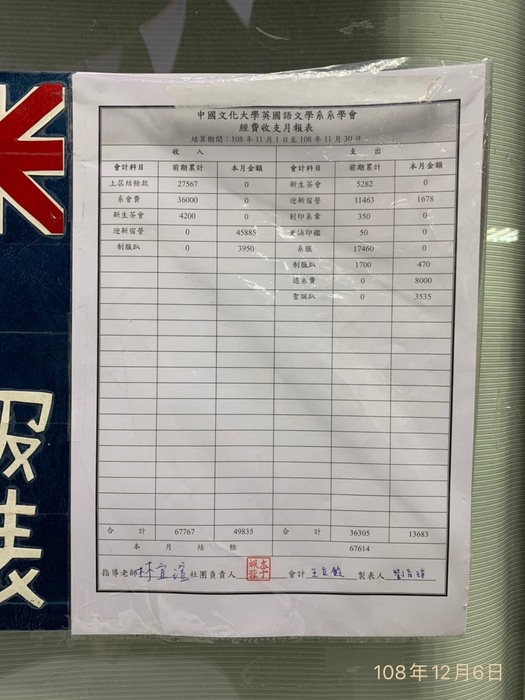 中國文化大學英國語文學系系學會
經費收支月報表
結算期間：108年11月1日至108年11月30日
收 入 支 出
會計科目 前期累計 本月金額 會計科目 前期累計 本月金額
上屆結餘款 27567 0 新生茶會 5282 0
系會費 36000 0 迎新宿營 11463 1678
新生茶會 4200 0 刻印系章 350 0
迎新宿營 0 45885 印鑑 50 0
制服趴 0 3950 系服 17460 0
制服趴 1700 470
退系費 0 8000
聖誕趴 0 3535
合 計 67767 49835 合 計 36305 13683
本 月 結 餘 67614
指導老師 林宜 社團負責人 會計 王 製表人 劉
服
108年12月6日